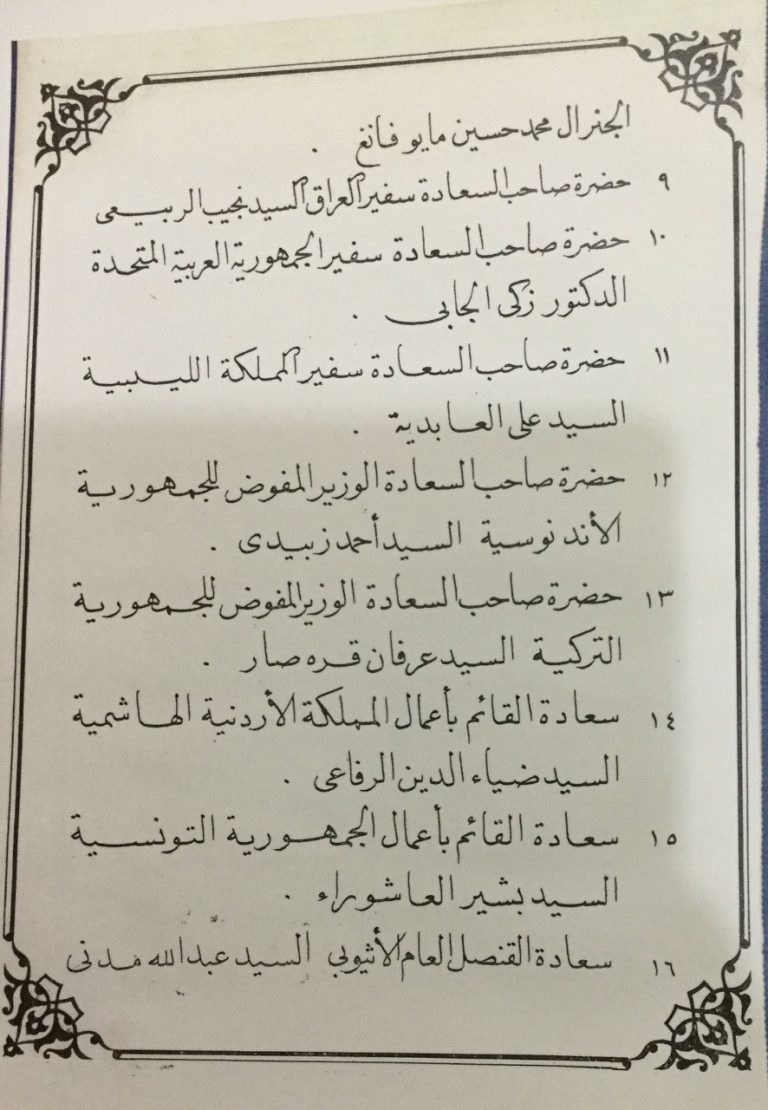 الجنرال محمد حسين مايو فانغ .
٩ حضرة صاحب السعادة سفير العراق السيد نجيب الربيعى
١٠ حضرة صاحب السعادة سفير الجمهورية العربية المتحدة
الدكتور زكى الجابى .
١١ حضرة صاحب السعادة سفير المملكة الليبية
السيد على العابدية .
١٢ حضرة صاحب السعادة الوزير المفوض للجمهورية
الأندنوسية السيد أحمد زبيدى .
١٣ حضرة صاحب السعادة الوزير المفوض للجمهورية
التركية السيد عرفان قره صار .
١٤ سعادة القائم بأعمال المملكة الأردنية الهاشمية
السيد ضياء الدين الرفاعى .
١٥ سعادة القائم بأعمال الجمهورية التونسية
السيد بشير العاشوراء .
١٦ سعادة القنصل العام الأثيوبي السيد عبد الله مدنى